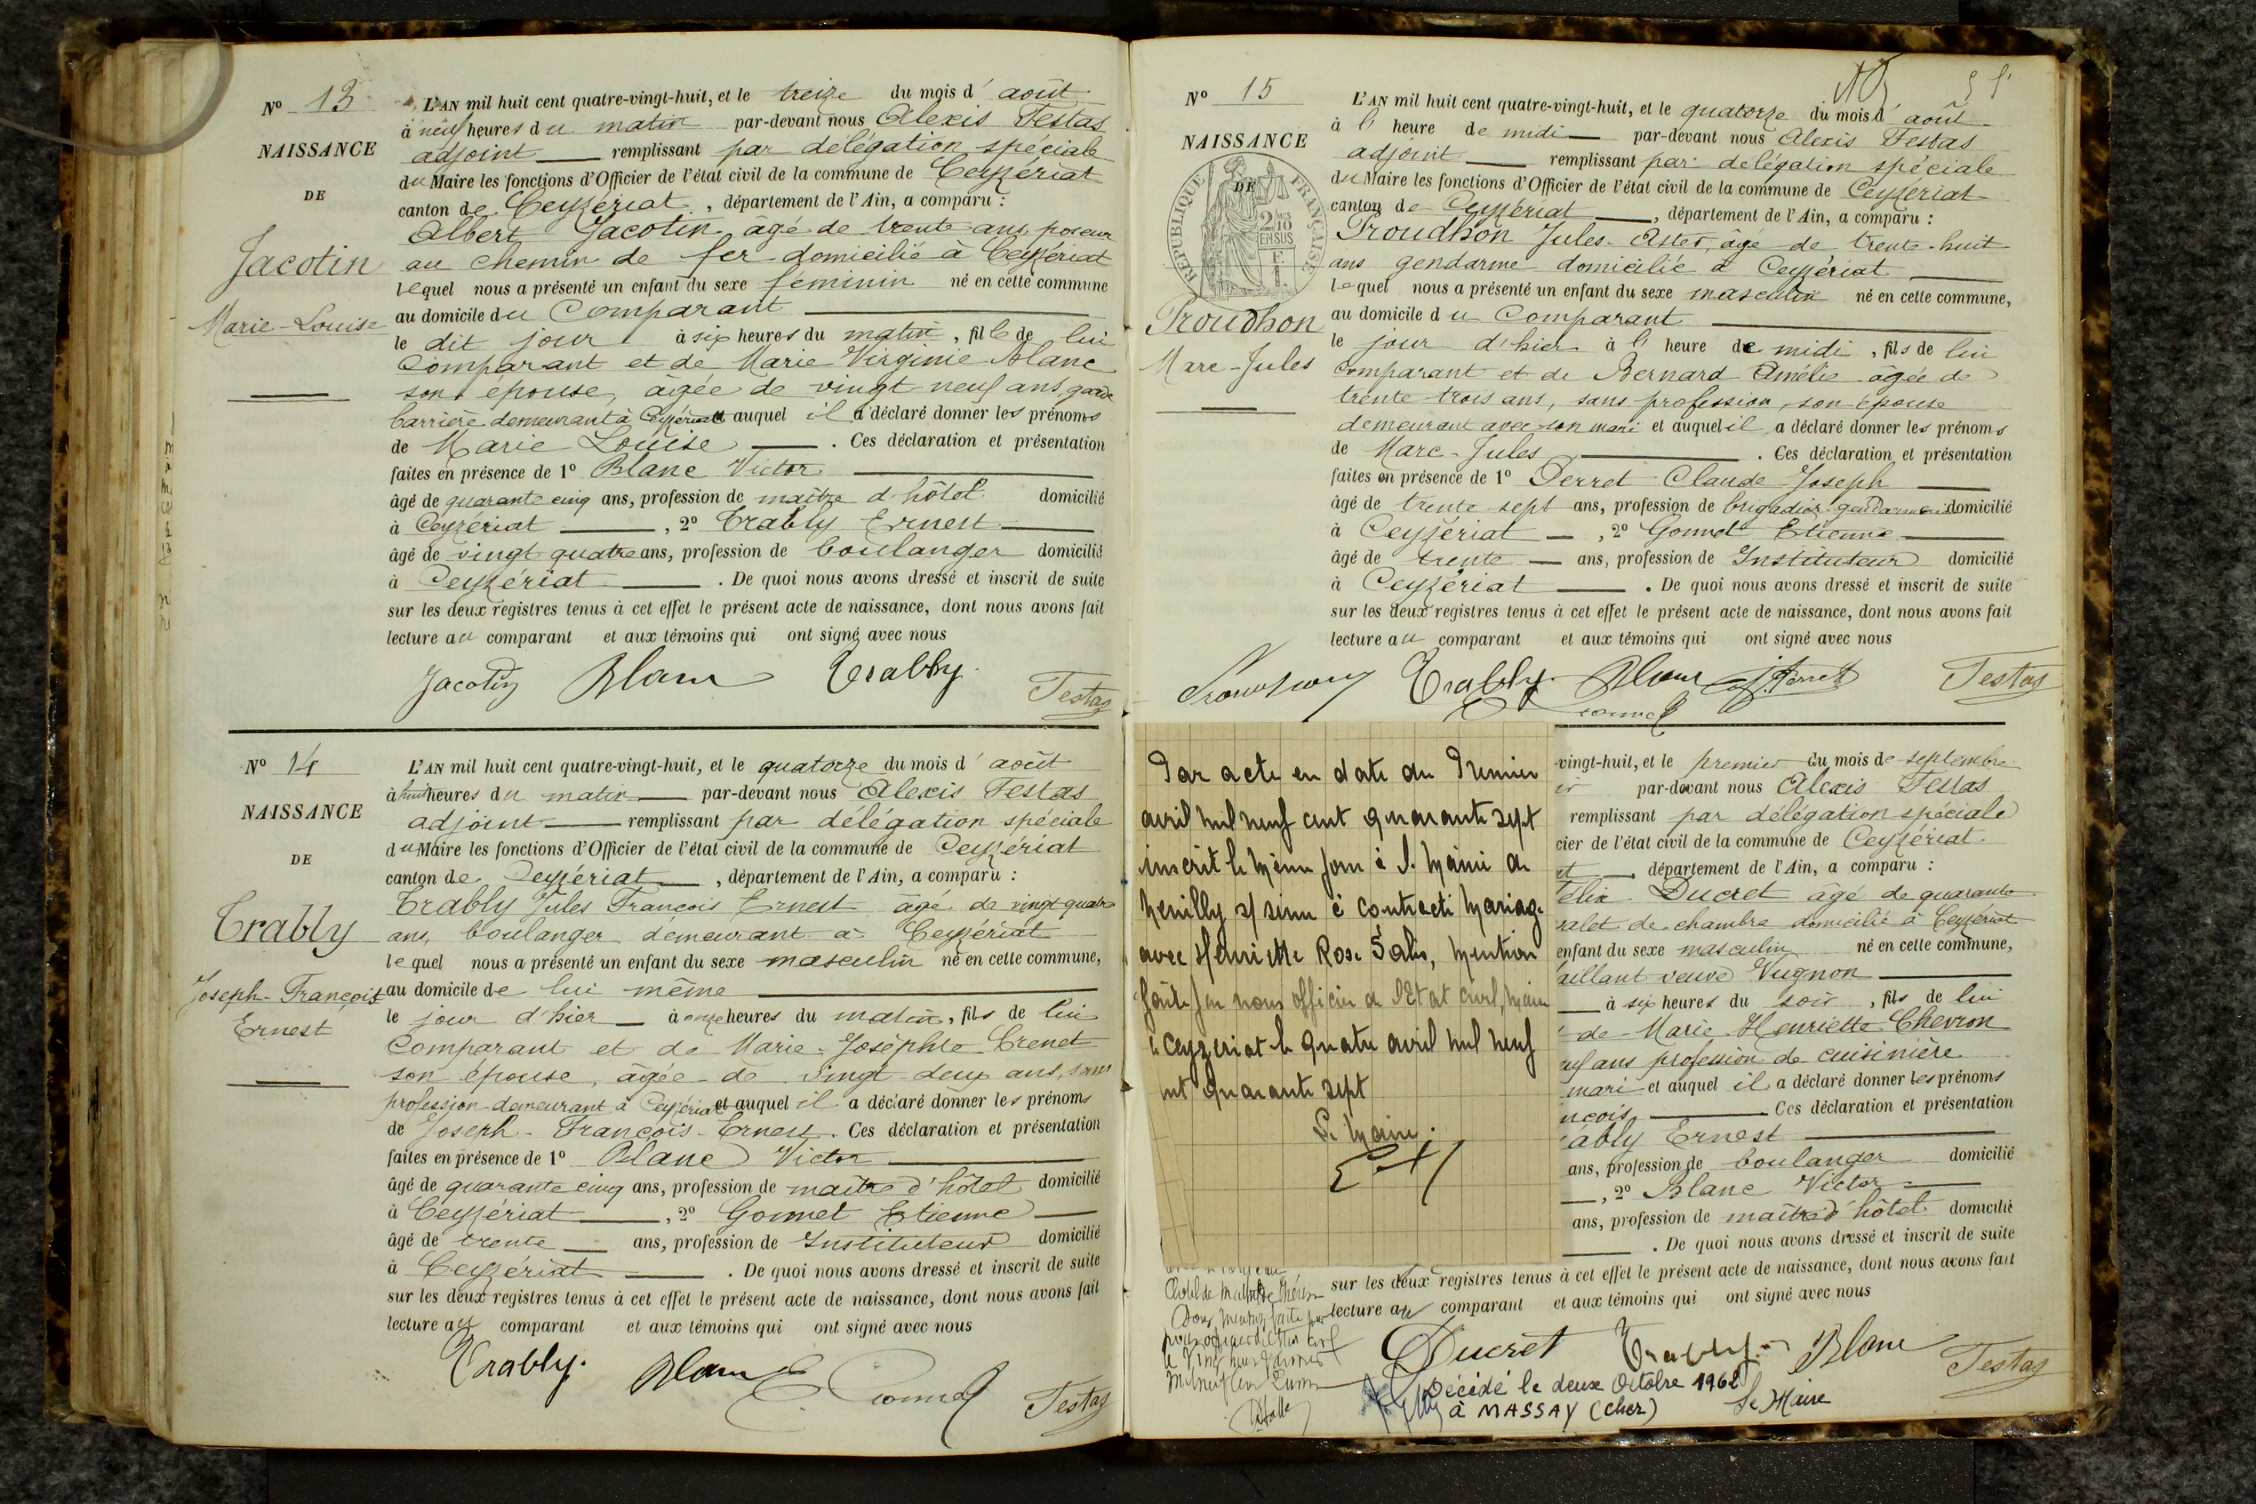 N° 13
NAISSANCE
DE
Jacotin
Marie-Louise
L'AN mil huit cent quatre-vingt-huit, et le treize du mois d'août
à neuf heures du matin par-devant nous Alexis Festas
adjoint remplissant par délégation spéciale
du Maire les fonctions d'Officier de l'état civil de la commune de Ceyzériat
canton de Ceyzériat, département de l'Ain, a comparu :
Albert Jacotin âgé de trente ans, poseur
au chemin de fer domicilié à Ceyzériat
lequel nous a présenté un enfant du sexe féminin né en cette commune
au domicile du Comparant
le dit jour à six heures du matin, fille de lui
Comparant et de Marie Virginie Blanc
son épouse, âgée de vingt neuf ans, garde
barrière demeurant à Ceyzériat et auquel il a déclaré donner les prénoms
de Marie Louise. Ces déclaration et présentation
faites en présence de 1° Blanc Victor
âgé de quarante cinq ans, profession de maître d'hôtel domicilié
à Ceyzériat, 2° Trably Ernest
âgé de vingt quatre ans, profession de boulanger domicilié
à Ceyzériat. De quoi nous avons dressé et inscrit de suite
sur les deux registres tenus à cet effet le présent acte de naissance, dont nous avons fait
lecture au comparant et aux témoins qui ont signé avec nous
Jacotin Blanc Trably Festas
N° 14
NAISSANCE
DE
Trably
Joseph-François
Ernest
L'AN mil huit cent quatre-vingt-huit, et le quatorze du mois d'août
à huit heures du matin par-devant nous Alexis Festas
adjoint remplissant par délégation spéciale
du Maire les fonctions d'Officier de l'état civil de la commune de Ceyzériat
canton de Ceyzériat, département de l'Ain, a comparu :
Trably Jules François Ernest âgé de vingt quatre
ans, boulanger demeurant à Ceyzériat
lequel nous a présenté un enfant du sexe masculin né en cette commune,
au domicile de lui même
le jour d'hier à onze heures du matin, fils de lui
Comparant et de Marie-Joséphte Crenet
son épouse, âgée de vingt-deux ans, sans
profession demeurant à Ceyzériat et auquel il a déclaré donner les prénoms
de Joseph-François-Ernest. Ces déclaration et présentation
faites en présence de 1° Blanc Victor
âgé de quarante cinq ans, profession de maître d'hôtel domicilié
à Ceyzériat, 2° Gonnet Etienne
âgé de trente ans, profession de Instituteur domicilié
à Ceyzériat. De quoi nous avons dressé et inscrit de suite
sur les deux registres tenus à cet effet le présent acte de naissance, dont nous avons fait
lecture au comparant et aux témoins qui ont signé avec nous
Trably. Blanc Gonnet Festas
N° 15
NAISSANCE
DE
RÉPUBLIQUE FRANÇAISE
2/10 EN SUS
Proudhon
Marc-Jules
L'AN mil huit cent quatre-vingt-huit, et le quatorze du mois d'août
à l'heure de midi par-devant nous Alexis Festas
adjoint remplissant par délégation spéciale
du Maire les fonctions d'Officier de l'état civil de la commune de Ceyzériat
canton de Ceyzériat, département de l'Ain, a comparu :
Proudhon Jules-Aster, âgé de trente-huit
ans gendarme domicilié à Ceyzériat
lequel nous a présenté un enfant du sexe masculin né en cette commune,
au domicile du Comparant
le jour d'hier à l'heure de midi, fils de lui
comparant et de Bernard Amélie âgée de
trente trois ans, sans profession, son épouse
demeurant avec son mari et auquel il a déclaré donner les prénoms
de Marc-Jules. Ces déclaration et présentation
faites en présence de 1° Perret Claude Joseph
âgé de trente sept ans, profession de brigadier gendarmerie domicilié
à Ceyzériat, 2° Gonnet Etienne
âgé de trente ans, profession de Instituteur domicilié
à Ceyzériat. De quoi nous avons dressé et inscrit de suite
sur les deux registres tenus à cet effet le présent acte de naissance, dont nous avons fait
lecture au comparant et aux témoins qui ont signé avec nous
Proudhon Trably. Blanc Perret Festas
Gonnet
Par acte en date du Premier
avril mil neuf cent quarante sept
inscrit le même jour à la Mairie de
Neuilly s/ seine a contracté mariage
avec Henriette Rose Salis, mention
faite par nous officier de l'Etat civil, Mairie
à Ceyzeriat le quatre avril mil neuf
nt quarante sept
Le Maire.
vingt-huit, et le premier du mois de septembre
ir par-devant nous Alexis Festas
remplissant par délégation spéciale
cier de l'état civil de la commune de Ceyzériat
et, département de l'Ain, a comparu :
élix Ducret âgé de quarante
valet de chambre domicilié à Ceyzériat
enfant du sexe masculin né en cette commune,
aillant veuve Vugnon
à six heures du soir, fils de lui
de Marie Henriette Chevron
euf ans profession de cuisinière
mari et auquel il a déclaré donner les prénoms
nçois Ces déclaration et présentation
ably Ernest
ans, profession de boulanger domicilié
, 2° Blanc Victor
ans, profession de maître d'hôtel domicilié
. De quoi nous avons dressé et inscrit de suite
sur les deux registres tenus à cet effet le présent acte de naissance, dont nous avons fait
lecture au comparant et aux témoins qui ont signé avec nous
Ducret Trably. Blanc Festas
Décédé le deux Octobre 1962
à MASSAY (Cher) Le Maire